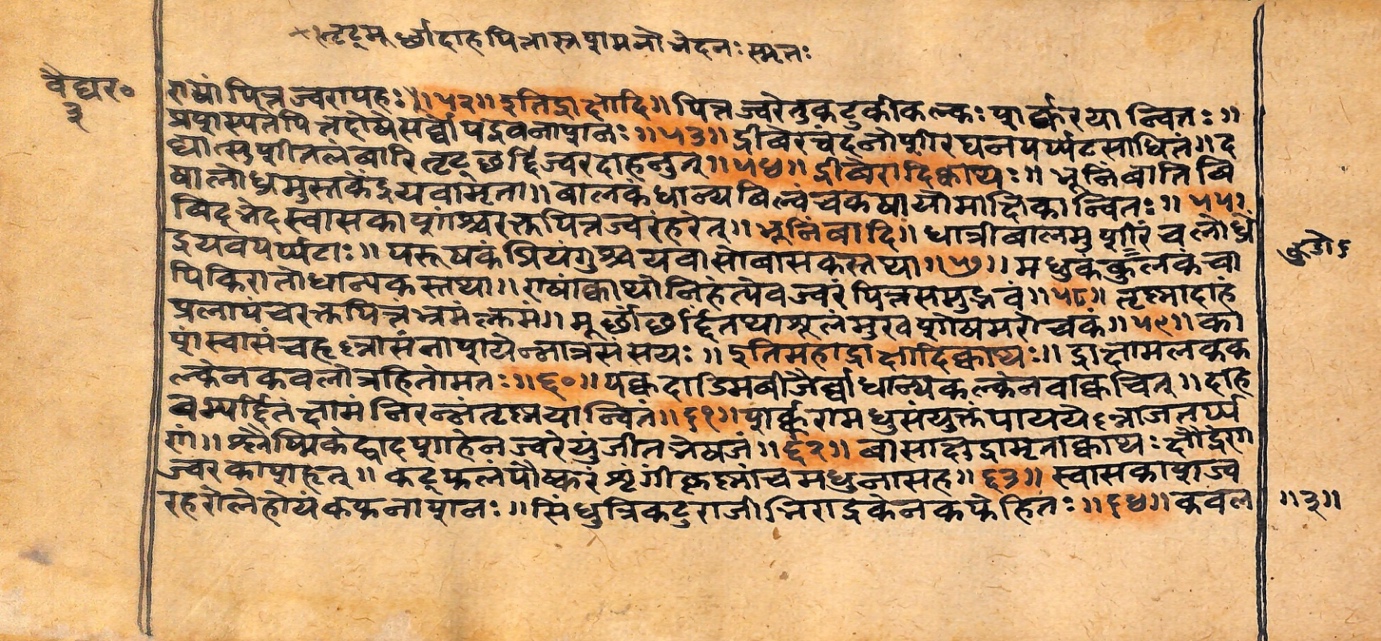 तृट्मूर्छादाहपित्तास्रशमनो भेदनः स्मृतः
वैद्यर॰
३
राषां पित्तज्वरापहः ॥५२॥ इतिद्राक्षादि ॥ पित्तज्वरेतुकटुकीकल्कः शर्करयान्वितः ॥
प्रशस्यते पित्तहोषसर्व्वोपद्रवनाशनः ॥५३॥ ह्रीवेरचंदनोशीरघनपर्प्पटसाधितं ॥ द
द्यात्सुशीतलं वारि तृट्छर्द्दिज्वरदाहनुत् ॥५४॥ ह्रीवेरादिक्वाथः ॥ भूनिंवातिवि
षालोध्रमुस्तकेंद्रयवामृता ॥ वालकंधान्यविल्वंचकषायोमाक्षिकान्वितः ॥ ५५॥
विट्भेदस्वासकाशाश्चरक्तपित्तज्वरंहरेत् ॥ भूनिंवादि ॥ धात्रीवालमुशीरंचलोध्रें
द्रयवपर्प्पटाः ॥ परूषकंप्रियंगुश्चयवासोवासकस्तथा ॥५७॥ मधुकंकूलकंचा
पिकिरातोधान्यकस्तथा ॥ राषांक्वाथोनिहंत्येवज्वरंपित्तसमुद्भवं ॥५८॥ तृष्णादाहं
प्रलापंचरक्तपित्तंभ्रमंक्लमं ॥ मूर्छांछर्द्दिंतथाशूलंमुखशोषमरोचकं ॥५९॥ का
शंस्वासंचहृल्लासंनाशयेन्नात्रसंसयः ॥ इतिमहाद्राक्षादिक्वाथः ॥ द्राक्षामलकक
ल्केनकवलोत्रहितोमतः ॥६०॥ पक्वदाडिमवीजैर्व्वाधान्यकल्केनवाक्वचित् ॥ दाह
वम्यर्द्दितंक्षामंनिरन्नंतृष्णयान्वितं ॥६१॥ शर्क्करामधुसंयुक्तंपाययेल्लाजतर्प्प
णं ॥ श्लैष्मिकेद्वादशाहेनज्वरेयुंजीतभेषजं ॥६२॥ वासाक्षुद्रामृताक्वाथः क्षौद्रेण
ज्वरकाशहृत् ॥ कट्फलंपौष्करंशृंगीकृष्णांचमधुनासह ॥ ६३॥ स्वासकाशज्व
रहरोलेहोयंकफनाशनः ॥ सिंधुत्रिकटुराजीभिरार्द्रकेनकफेहितः ॥६४॥ कवल
॥३॥